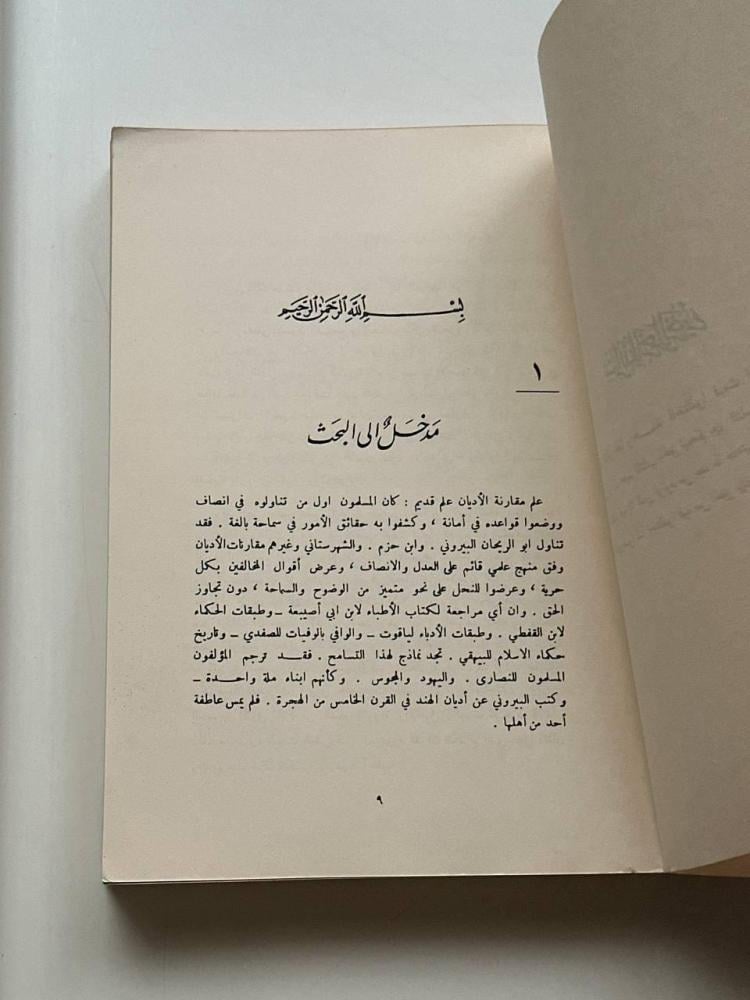 بسم الله الرحمن الرحيم
١
مدخل الى البحث
علم مقارنة الأديان علم قديم : كان المسلمون اول من تناولوه في انصاف
ووضعوا قواعده في أمانة ، وكشفوا به حقائق الأمور في سماحة بالغة . فقد
تناول ابو الريحان البيروني . وابن حزم . والشهرستاني وغيرهم مقارنات الأديان
وفق منهج علمي قائم على العدل والانصاف ، وعرض أقوال المخالفين بكل
حرية ، وعرضوا للنحل على نحو متميز من الوضوح والسماحة ، دون تجاوز
الحق . وان أي مراجعة لكتاب الأطباء لابن ابي أصيبعة ــ وطبقات الحكماء
لابن القفطي . وطبقات الأدباء لياقوت ــ والوافي بالوفيات للصفدي ــ وتاريخ
حكماء الاسلام للبيهقي . تجد نماذج لهذا التسامح . فقد ترجم المؤلفون
المسلمون للنصارى . واليهود والمجوس . وكأنهم ابناء ملة واحدة ــ
وكتب البيروني عن أديان الهند في القرن الخامس من الهجرة . فلم يمس عاطفة
أحد من أهلها .
٩